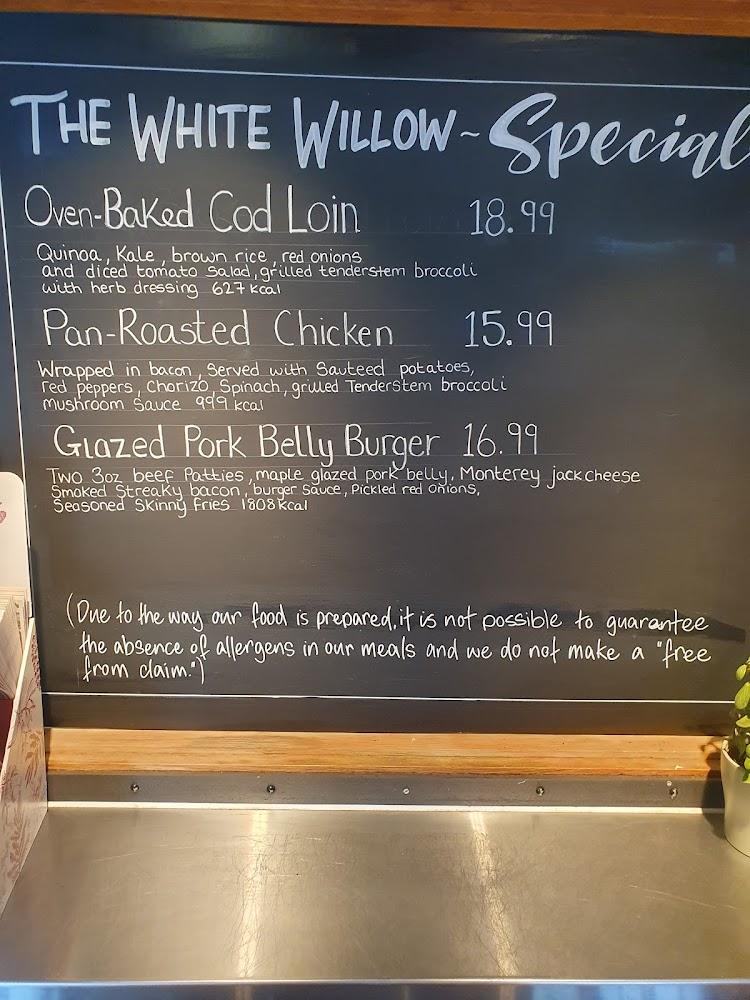 THE WHITE WILLOW ~ Special
Oven-Baked Cod Loin 18.99
Quinoa, Kale, brown rice, red onions
and diced tomato salad, grilled tenderstem broccoli
with herb dressing 627 kcal
Pan-Roasted Chicken 15.99
Wrapped in bacon, Served with Sauteed potatoes,
red peppers, Chorizo, Spinach, grilled Tenderstem broccoli
Mushroom Sauce 999 kcal
Glazed Pork Belly Burger 16.99
Two 3oz beef Patties, maple glazed pork belly, Monterey jack cheese
Smoked Streaky bacon, burger Sauce, Pickled red onions,
Seasoned Skinny Fries 1808 kcal
(Due to the way our food is prepared, it is not possible to guarantee
the absence of allergens in our meals and we do not make a "free
from claim.")